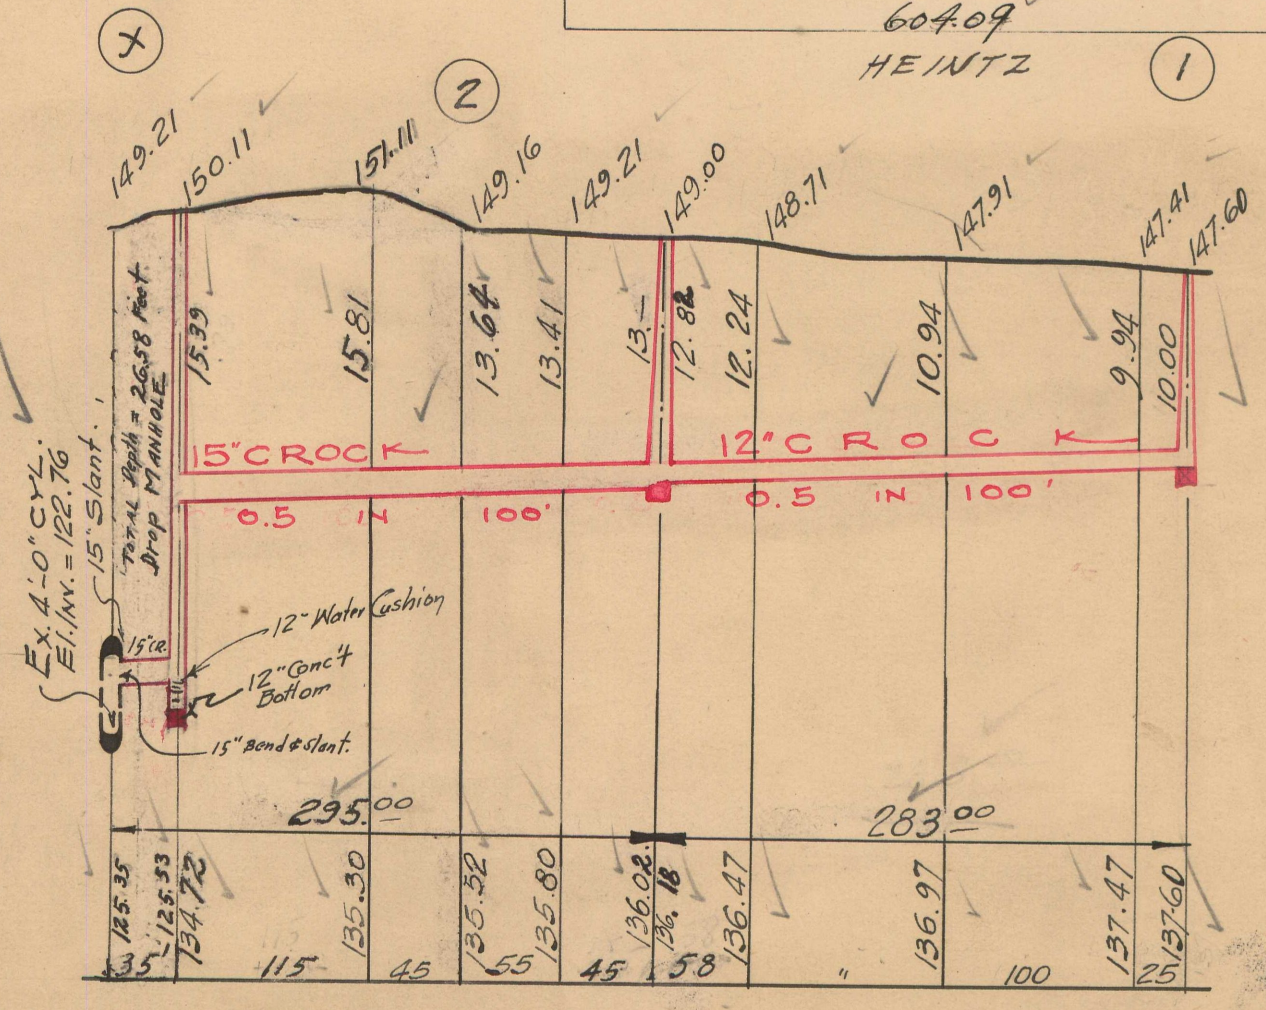 604.09
HEINTZ
X
2
1
149.21
150.11
151.11
149.16
149.21
149.00
148.71
147.91
147.41
147.60
15.39
15.81
13.64
13.41
13.—
12.82
12.24
10.94
9.94
10.00
Total Depth = 26.58 Feet.
Drop MANHOLE
Ex. 4'-0" CYL.
El. Inv. = 122.76
15" Slant.
15" CROCK
0.5 IN 100'
12" CROCK
0.5 IN 100'
15" CR.
12" Water Cushion
12" Conc't
Bottom
15" Bend & Slant.
295.00
283.00
125.35
125.53
134.72
135.30
135.52
135.80
136.02
136.18
136.47
136.97
137.47
137.60
35 115 45 55 45 58 " 100 25